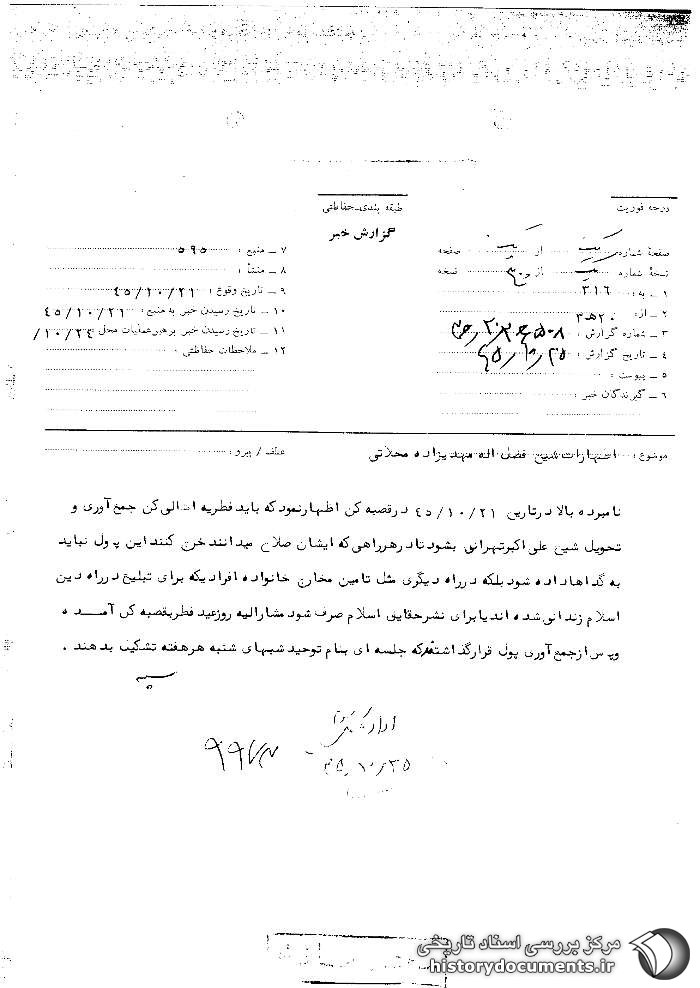 درجه فوریت
طبقه بندی حفاظتی
گزارش خبر
صفحهٔ شماره یک از یک صفحه
نسخهٔ شماره از نسخه
۱ ـ به : ۳۱۶
۲ ـ از : ۲۰ ﻫ ۳
۳ ـ شماره گزارش :
۴ ـ تاریخ گزارش :
۵ ـ پیوست :
۶ ـ گیرندگان خبر :
۷ ـ منبع : ۵۹۵
۸ ـ منشأ :
۹ ـ تاریخ وقوع : ۴۵/۱۰/۲۱
۱۰ ـ تاریخ رسیدن خبر به منبع : ۴۵/۱۰/۲۱
۱۱ ـ تاریخ رسیدن خبر برهبر عملیات محل : ۱۰/۲۴/
۱۲ ـ ملاحظات حفاظتی :
موضوع : اظهارات شیخ فضل اله مهدیزاده محلاتی
عطف / پیرو :
نامبرده بالا در تاریخ ۴۵/۱۰/۲۱ در قصبه کن اظهار نمود که باید فطریه اهالی کن جمع آوری و
تحویل شیخ علی اکبر تهرانی بشود تا در هر راهی که ایشان صلاح میدانند خرج کنند این پول نباید
به گداها داده شود بلکه در راه دیگری مثل تامین مخارج خانواده افرادیکه برای تبلیغ در راه دین
اسلام زندانی شده اند یا برای نشر حقایق اسلام صرف شود مشارالیه روز عید فطر بقصبه کن آمده
و پس از جمع آوری پول قرار گذاشتند که جلسه ای بنام توحید شبهای شنبه هر هفته تشکیل بدهند .
مرکز بررسی اسناد تاریخی
historydocuments.ir